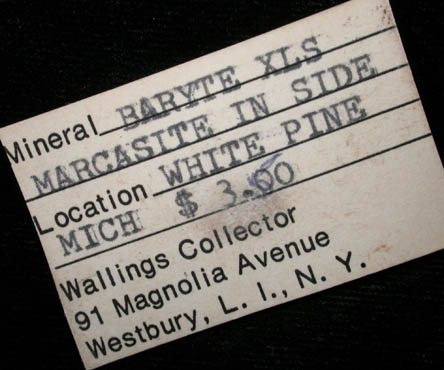 Mineral BARYTE XLS
MARCASITE IN SIDE
Location WHITE PINE
MICH $ 3.00
Wallings Collector
91 Magnolia Avenue
Westbury, L. I., N. Y.